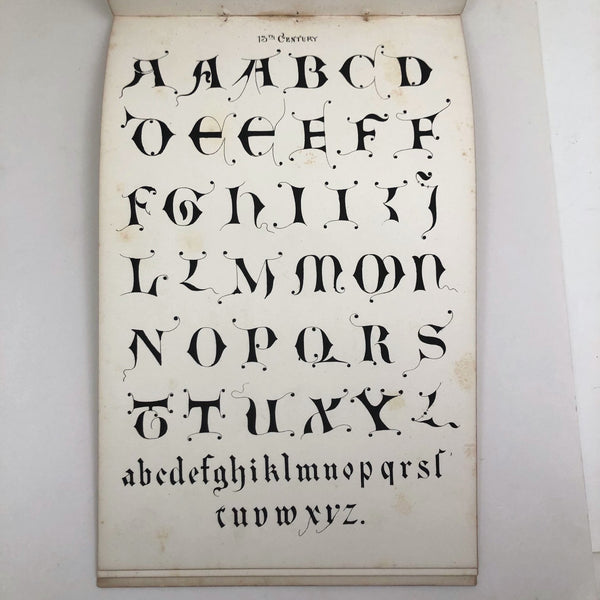 15TH CENTURY
A A A B C D
D E E E F F
F G H I I K J
L L M M M N
N O P Q R S
T T U X Y Z
abcdefghiklmnopqrsſ
tuvwxyz.